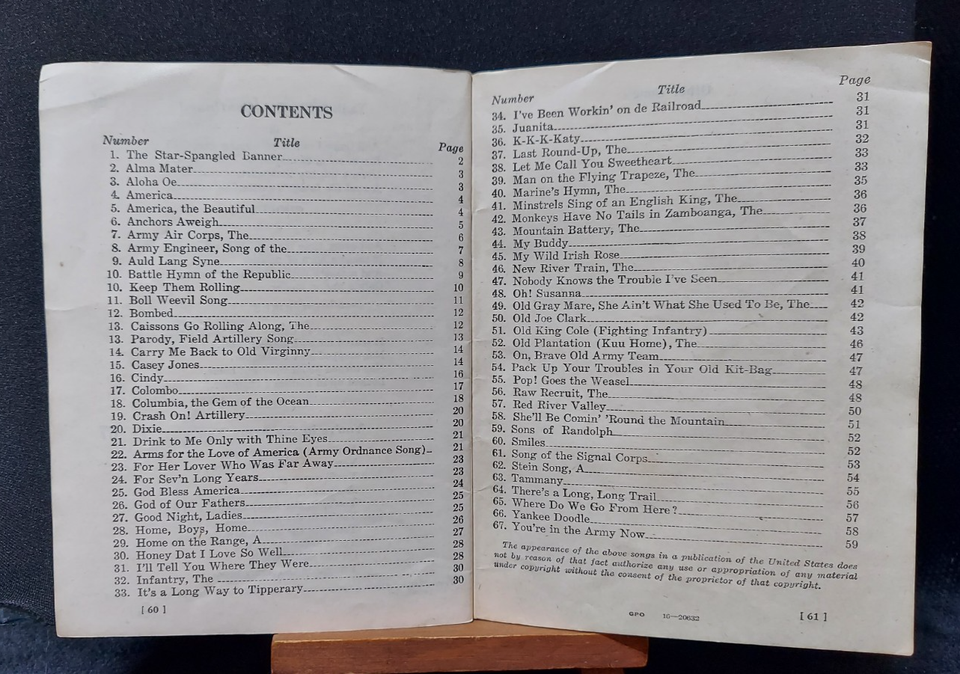 CONTENTS
Number Title Page
1. The Star-Spangled Banner 2
2. Alma Mater 3
3. Aloha Oe 3
4. America 4
5. America, the Beautiful 4
6. Anchors Aweigh 5
7. Army Air Corps, The 6
8. Army Engineer, Song of the 7
9. Auld Lang Syne 8
10. Battle Hymn of the Republic 9
10. Keep Them Rolling 10
11. Boll Weevil Song 11
12. Bombed 12
13. Caissons Go Rolling Along, The 12
13. Parody, Field Artillery Song 13
14. Carry Me Back to Old Virginny 14
15. Casey Jones 14
16. Cindy 16
17. Colombo 17
18. Columbia, the Gem of the Ocean 18
19. Crash On! Artillery 20
20. Dixie 20
21. Drink to Me Only with Thine Eyes 21
22. Arms for the Love of America (Army Ordnance Song) 21
23. For Her Lover Who Was Far Away 23
24. For Sev'n Long Years 23
25. God Bless America 24
26. God of Our Fathers 25
27. Good Night, Ladies 25
28. Home, Boys, Home 26
29. Home on the Range, A 27
30. Honey Dat I Love So Well 28
31. I'll Tell You Where They Were 28
32. Infantry, The 30
33. It's a Long Way to Tipperary 30
[ 60 ]
Number Title Page
34. I've Been Workin' on de Railroad 31
35. Juanita 31
36. K-K-K-Katy 31
37. Last Round-Up, The 32
38. Let Me Call You Sweetheart 33
39. Man on the Flying Trapeze, The 33
40. Marine's Hymn, The 35
41. Minstrels Sing of an English King, The 36
42. Monkeys Have No Tails in Zamboanga, The 36
43. Mountain Battery, The 37
44. My Buddy 38
45. My Wild Irish Rose 39
46. New River Train, The 40
47. Nobody Knows the Trouble I've Seen 41
48. Oh! Susanna 41
49. Old Gray Mare, She Ain't What She Used To Be, The 42
50. Old Joe Clark 42
51. Old King Cole (Fighting Infantry) 43
52. Old Plantation (Kuu Home), The 46
53. On, Brave Old Army Team 47
54. Pack Up Your Troubles in Your Old Kit-Bag 47
55. Pop! Goes the Weasel 48
56. Raw Recruit, The 48
57. Red River Valley 50
58. She'll Be Comin' 'Round the Mountain 51
59. Sons of Randolph 52
60. Smiles 52
61. Song of the Signal Corps 53
62. Stein Song, A 54
63. Tammany 55
64. There's a Long, Long Trail 56
65. Where Do We Go From Here? 57
66. Yankee Doodle 58
67. You're in the Army Now 59
The appearance of the above songs in a publication of the United States does
not by reason of that fact authorize any use or appropriation of any material
under copyright without the consent of the proprietor of that copyright.
GPO 16—20632
[ 61 ]